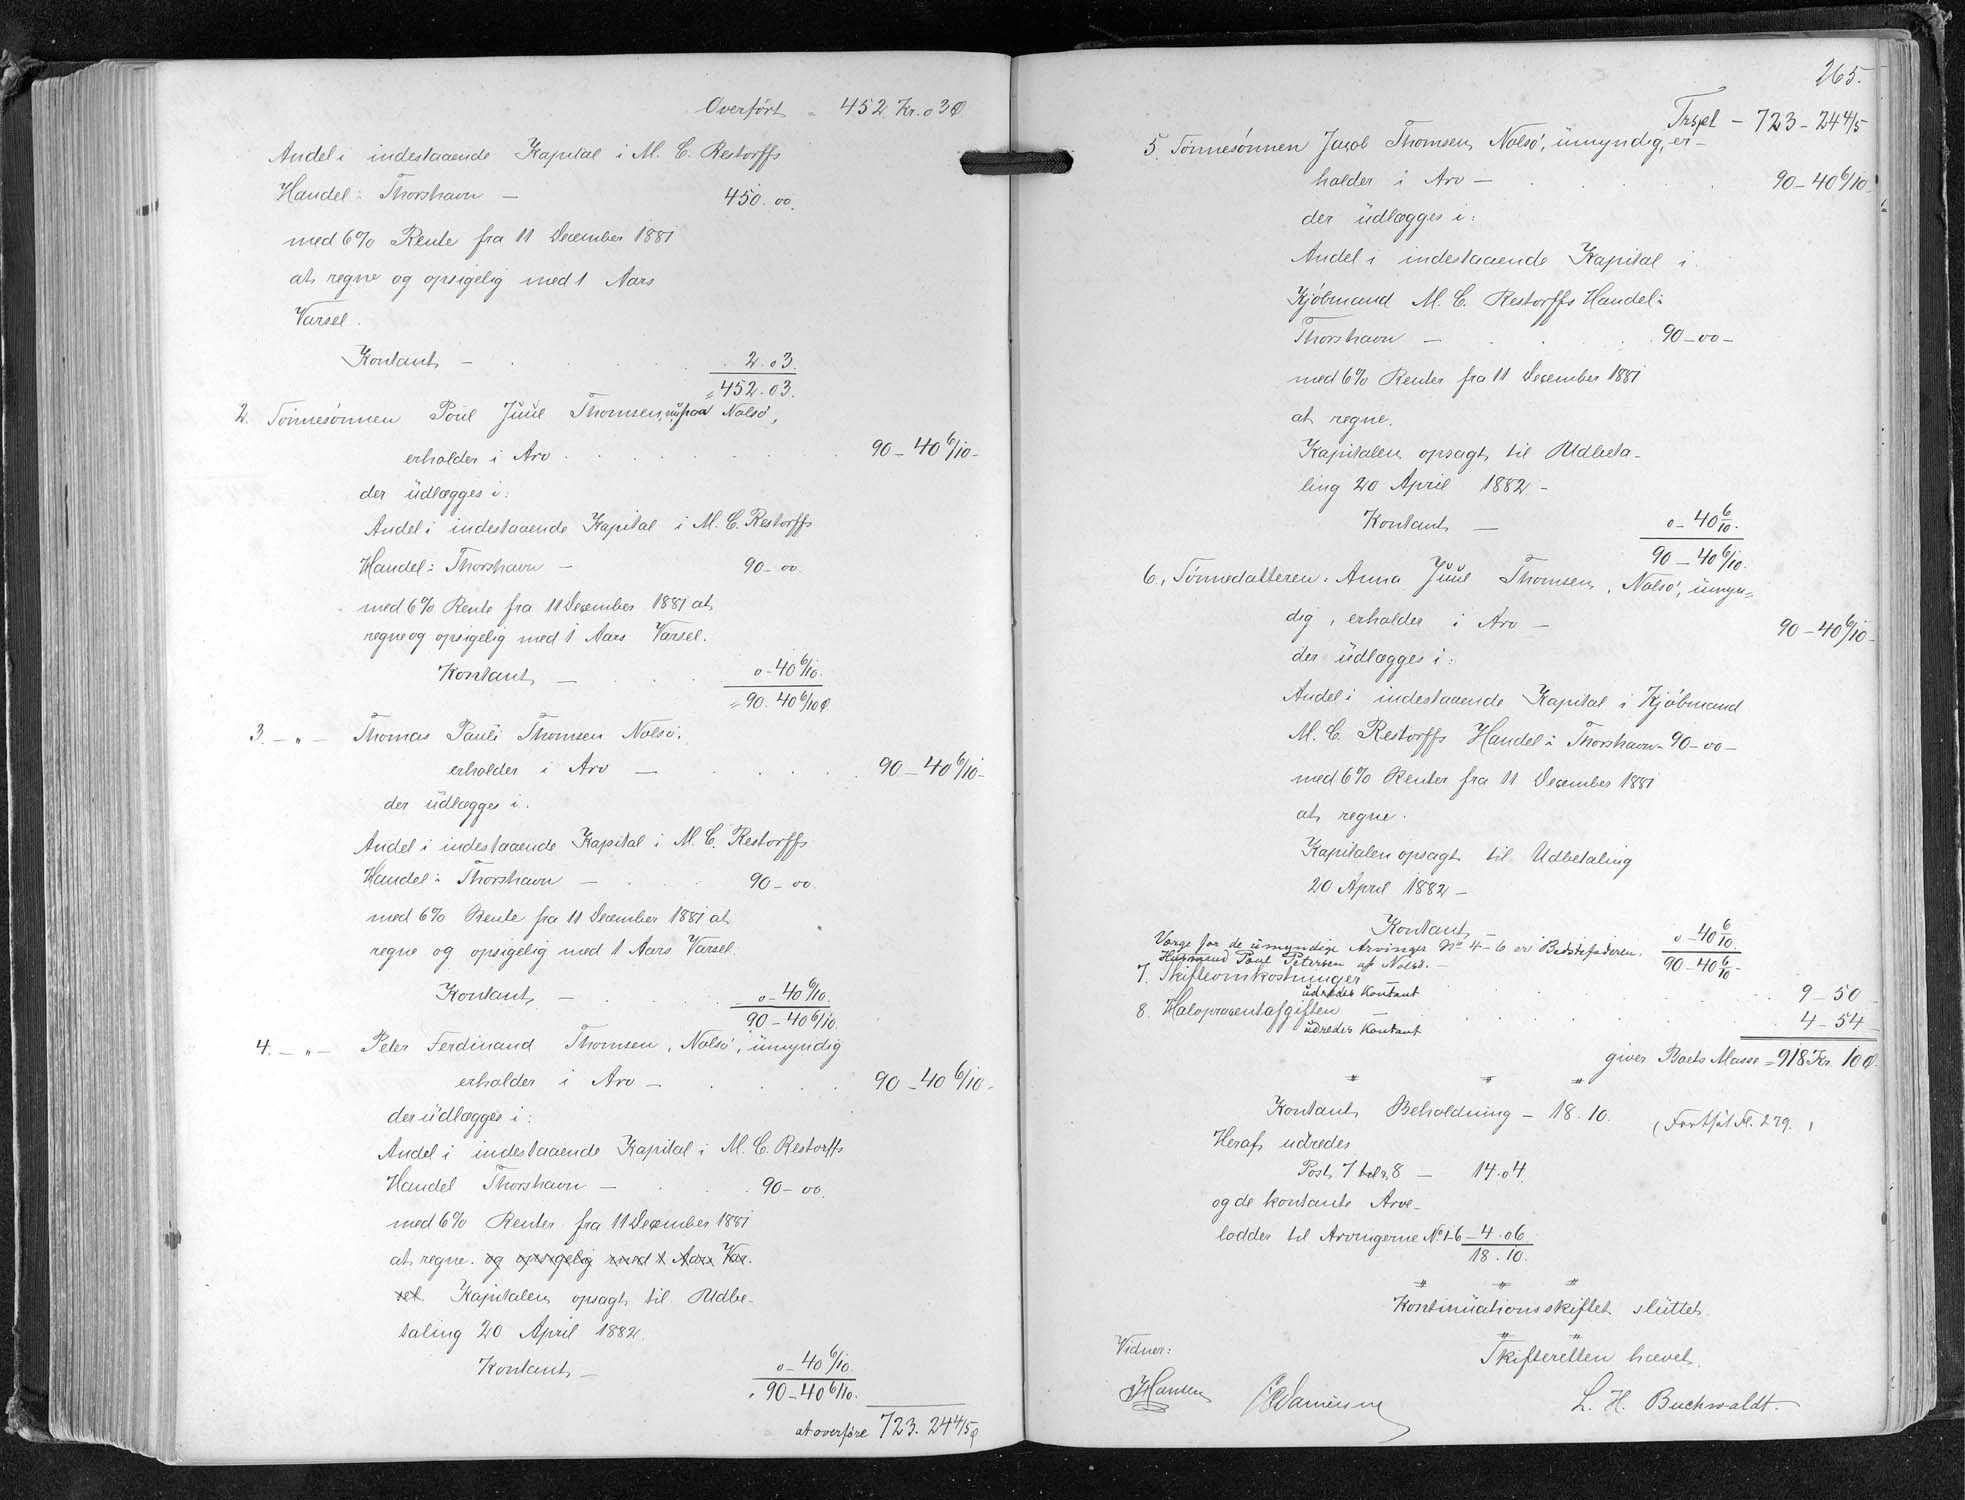 Overført = 452 Kr. 03 Ø
Andel i indestaaende Kapital i M. C. Restorffs
Handel i Thorshavn — 450. 00.
med 6% Rente fra 11 December 1881
at regne og opsigelig med 1 Aars
Varsel.
Kontant — 2. 03.
= 452. 03.
2. Sønnesønnen Poul Juul Thomsen, nu paa Nolsø,
erholder i Arv . . . 90 — 40 6/10 —
der udlægges i:
Andel i indestaaende Kapital i M. C. Restorffs
Handel i Thorshavn — 90 — 00.
med 6% Rente fra 11 December 1881 at
regne og opsigelig med 1 Aars Varsel.
Kontant — 0 — 40 6/10.
= 90. 40 6/10 Ø.
3. — " — Thomas Pauli Thomsen Nolsø.
erholder i Arv — . . . 90 — 40 6/10 —
der udlægges i.
Andel i indestaaende Kapital i M. C. Restorffs
Handel i Thorshavn — 90 — 00.
med 6% Rente fra 11 December 1881 at
regne og opsigelig med 1 Aars Varsel.
Kontant — 0 — 40 6/10.
90 — 40 6/10.
4. — " — Peter Ferdinand Thomsen, Nolsø, umyndig
erholder i Arv — . . . 90 — 40 6/10 —
der udlægges i:
Andel i indestaaende Kapital i M. C. Restorffs
Handel Thorshavn — 90 — 00.
med 6% Renter fra 11 December 1881
at regne. og opsigelig med 1 Aars Var-
sel Kapitalen opsagt til Udbe-
taling 20 April 1882.
Kontant — 0 — 40 6/10.
90 — 40 6/10.
at overføre 723. 24 4/5 Ø
265.
Trspt — 723 — 24 4/5
5. Sønnesønnen Jacob Thomsen, Nolsø, umyndig, er-
holder i Arv — . . . 90 — 40 6/10
der udlægges i:
Andel i indestaaende Kapital i
Kjøbmand M. C. Restorffs Handel i
Thorshavn — . . . 90 — 00 —
med 6% Renter fra 11 December 1881
at regne.
Kapitalen opsagt til Udbeta-
ling 20 April 1882 —
Kontant — 0 — 40 6/10.
90 — 40 6/10.
6. Sønnedatteren: Anna Juul Thomsen, Nolsø, umyn=
dig, erholder i Arv — 90 — 40 6/10 —
der udlægges i:
Andel i indestaaende Kapital i Kjøbmand
M. C. Restorffs Handel i Thorshavn — 90 — 00 —
med 6% Renter fra 11 December 1881
at regne.
Kapitalen opsagt til Udbetaling
20 April 1882 —
Kontant — 0 — 40 6/10.
90 — 40 6/10 —
Værge for de umyndige Arvinger No 4 — 6 er Bedstefaderen,
Husmand Poul Petersen af Nolsø. —
7. Skifteomkostninger —
udredes Kontant . . . 9 — 50
8. Halvprocentafgiften —
udredes Kontant . . . 4 — 54
giver Boets Masse = 918 Kr. 10 Ø.
Kontant Beholdning — 18. 10. (Fortsat Fl. 279.)
Heraf udredes
Post 7 8 — 14. 04.
og de kontante Arve-
lodder til Arvingerne No 1-6 — 4. 06
18. 10.
Kontinuationsskiftet sluttet.
Skifteretten hævet.
Vidner:
Hansen
L. H. Buchwaldt.